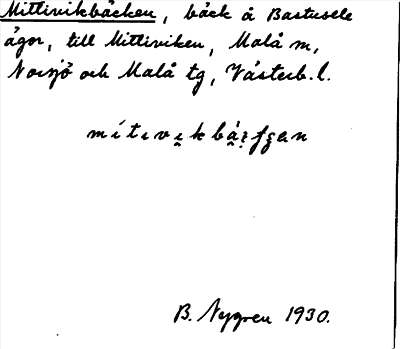 Mittivikbäcken, bäck å Bastusele
ägor, till Mittiviken, Malå m,
Norsjö och Malå tg, Västerb. l.
B. Nygren 1930.